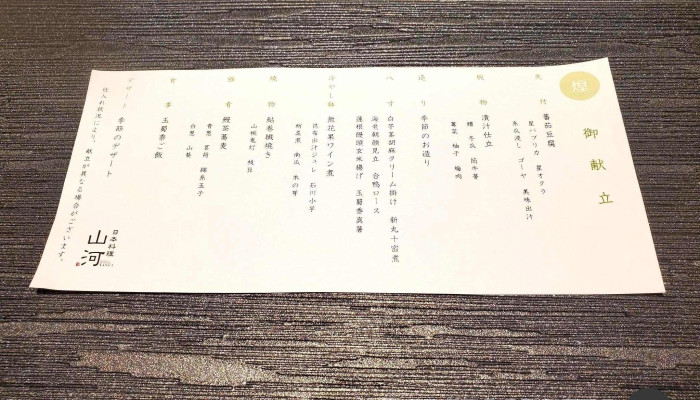 煌
御献立
先付 蕃茄豆腐
星パプリカ 星オクラ
糸瓜浸し ゴーヤ 美味出汁
椀物 潰汁仕立
鱧 冬瓜 順才
蓴菜 柚子 梅肉
造り 季節のお造り
八寸 白芋茎胡麻クリーム掛け 新丸十蜜煮
海老朝顔見立 合鴨ロース
蓮根饅頭玄米揚げ 玉蜀黍真薯
冷やし鉢 無花果ワイン煮
昆布出汁ジュレ 石川小芋
南瓜
焼物 鮎巻繊焼き
山桃 枝豆
強肴 鰻茶蕎麦
青葱 茗荷 錦糸玉子
白葱 山葵
食事 玉蜀黍ご飯
デザート 季節のデザート
仕入れ状況により、献立が異なる場合がございます。
日本料理
山河